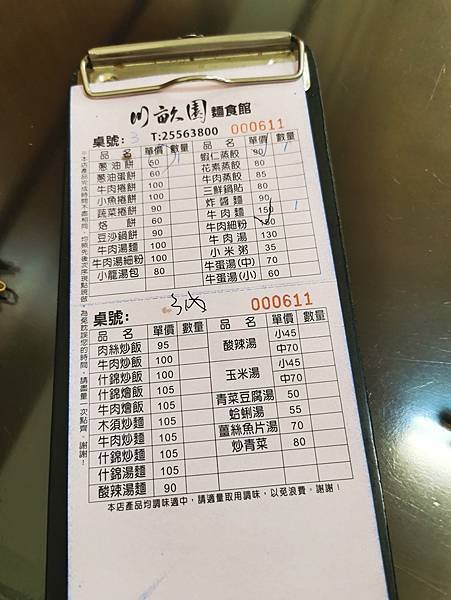 川畝園 麵食館
桌號: 3 T:25563800 000611
品名 單價 數量 品名 單價 數量
蔥油餅 50 蝦仁蒸餃 90
蔥油蛋餅 60 花素蒸餃 80
牛肉捲餅 100 牛肉蒸餃 85
小魚捲餅 100 三鮮鍋貼 80
蔬菜捲餅 90 炸醬麵 90
烙餅 60 牛肉麵 150
豆沙鍋餅 90 牛肉細粉 150
牛肉湯麵 100 牛肉湯 130
牛肉湯細粉 100 小米粥 35
小籠湯包 80 牛蛋湯(中) 70
牛蛋湯(小) 60
桌號: 000611
品名 單價 數量 品名 單價 數量
肉絲炒飯 95 酸辣湯 小45
牛肉炒飯 100 中70
什錦炒飯 100 玉米湯 小45
什錦燴飯 105 中70
牛肉燴飯 105 青菜豆腐湯 50
木須炒麵 105 蛤蜊湯 55
牛肉炒麵 105 薑絲魚片湯 70
什錦炒麵 105 炒青菜 80
什錦湯麵 105
酸辣湯麵 90
本店產品均調味適中,請適量取用調味,以免浪費。謝謝!